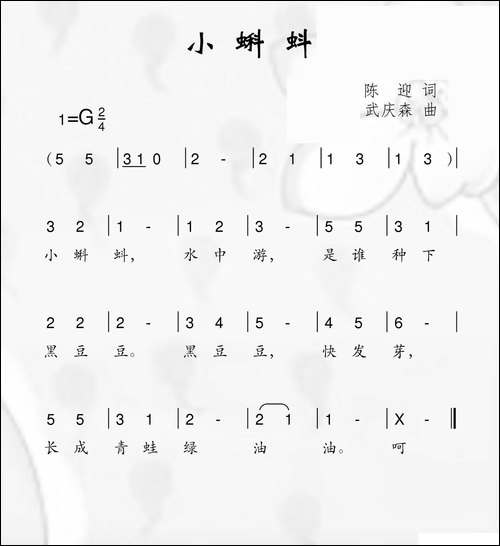 小蝌蚪
陈迎词
武庆森曲
1=G 2/4
(5 5 | 3 1 0 | 2 - | 2 1 | 1 3 | 1 3 )|
3 2 | 1 - | 1 2 | 3 - | 5 5 | 3 1 |
小蝌 蚪， 水中 游， 是谁 种下
2 2 | 2 - | 3 4 | 5 - | 4 5 | 6 - |
黑豆 豆。 黑豆 豆， 快发 芽，
5 5 | 3 1 | 2 - | 2 1 | 1 - | X - ||
长成 青蛙 绿 油 油。 呵